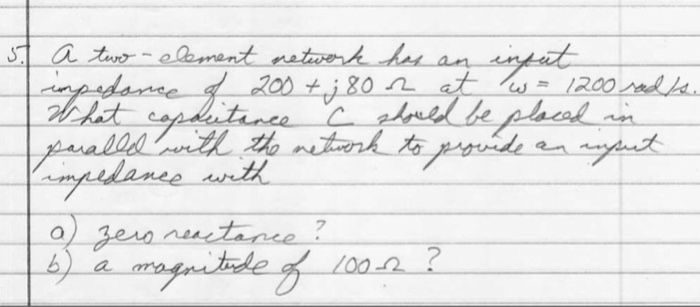 5. A two-element network has an input
impedance of 200 + j80 Ω at ω = 1200 rad/s.
What capacitance C should be placed in
parallel with the network to provide an input
impedance with
a) zero reactance?
b) a magnitude of 100 Ω?